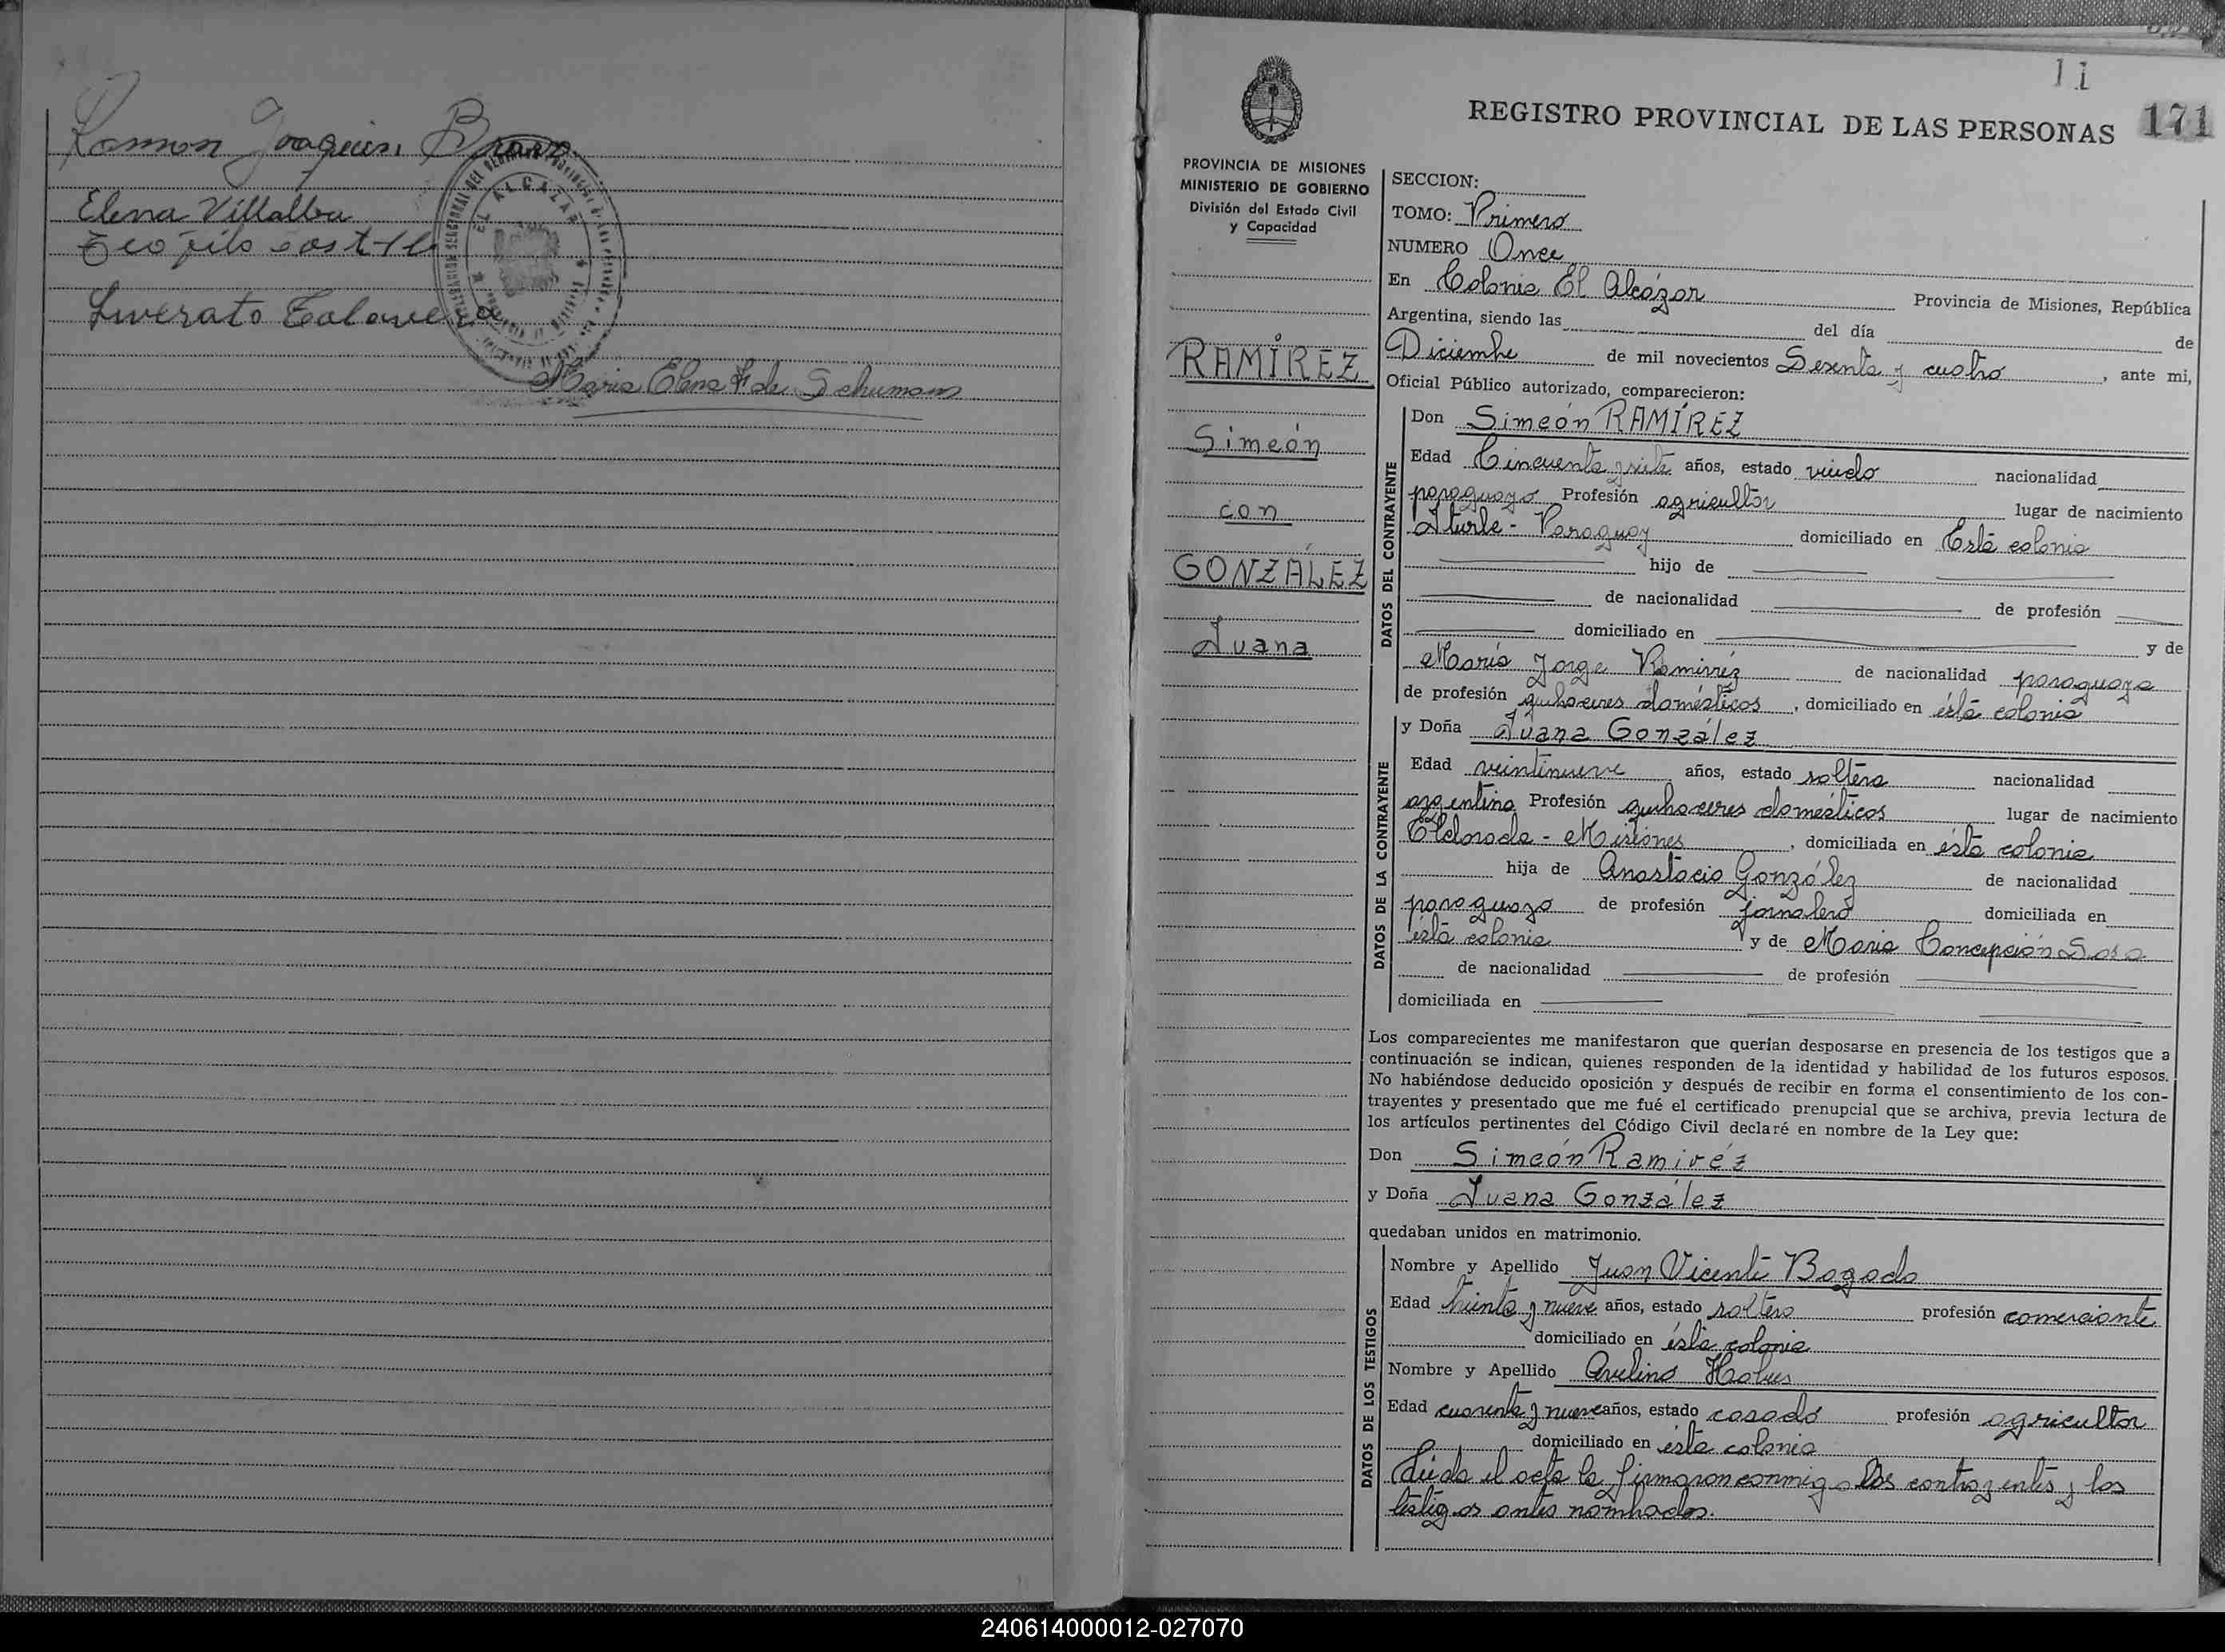 Ramon Joaquin
Elena Villalba
Liverato Talavera
EL ALCAZAR
Maria Elena F de Schumann
11
REGISTRO PROVINCIAL DE LAS PERSONAS 171
PROVINCIA DE MISIONES
MINISTERIO DE GOBIERNO
División del Estado Civil
y Capacidad
RAMÍREZ
Simeón
con
GONZÁLEZ
Juana
SECCION:
TOMO: Primero
NUMERO Once
En Colonia El Alcázar Provincia de Misiones, República
Argentina, siendo las del día de
Diciembre de mil novecientos Sesenta y cuatro, ante mi,
Oficial Público autorizado, comparecieron:
DATOS DEL CONTRAYENTE
Don Simeón RAMÍREZ
Edad Cincuenta y siete años, estado viudo nacionalidad
paraguayo Profesión agricultor lugar de nacimiento
Iturbe - Paraguay domiciliado en Esta colonia
hijo de
de nacionalidad de profesión
domiciliado en y de
María Jorge Ramirez de nacionalidad paraguaya
de profesión quehaceres domésticos, domiciliado en ésta colonia
DATOS DE LA CONTRAYENTE
y Doña Juana González
Edad veintinueve años, estado soltera nacionalidad
argentina Profesión quehaceres domésticos lugar de nacimiento
Eldorado - Misiones, domiciliada en ésta colonia
hija de Anastacio González de nacionalidad
paraguayo de profesión jornalero domiciliada en
ésta colonia y de Maria Concepción Sosa
de nacionalidad de profesión
domiciliada en
Los comparecientes me manifestaron que querían desposarse en presencia de los testigos que a
continuación se indican, quienes responden de la identidad y habilidad de los futuros esposos.
No habiéndose deducido oposición y después de recibir en forma el consentimiento de los con-
trayentes y presentado que me fué el certificado prenupcial que se archiva, previa lectura de
los artículos pertinentes del Código Civil declaré en nombre de la Ley que:
Don Simeón Ramiréz
y Doña Juana González
quedaban unidos en matrimonio.
DATOS DE LOS TESTIGOS
Nombre y Apellido Juan Vicente Bogado
Edad treinta y nueve años, estado soltero profesión comerciante
domiciliado en ésta colonia
Nombre y Apellido Avelino
Edad cuarenta y nueve años, estado casado profesión agricultor
domiciliado en ésta colonia
Leída el acta la firmaron conmigo los contrayentes y los
testigos antes nombrados.
240614000012-027070